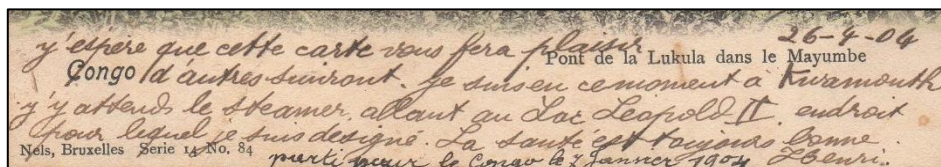 26-4-04
y'espère que cette carte vous fera plaisir
Pont de la Lukula dans le Mayumbe
Congo
d'autres suivront. je suis en ce moment à Kwamouth
y'y attends le steamer, allant au Lac Leopold II, endroit
pour lequel je suis designé. La santé est toujours bonne
Nels, Bruxelles Serie 14 No. 84
parti pour le Congo le 7 Janvier 1904
Henri.